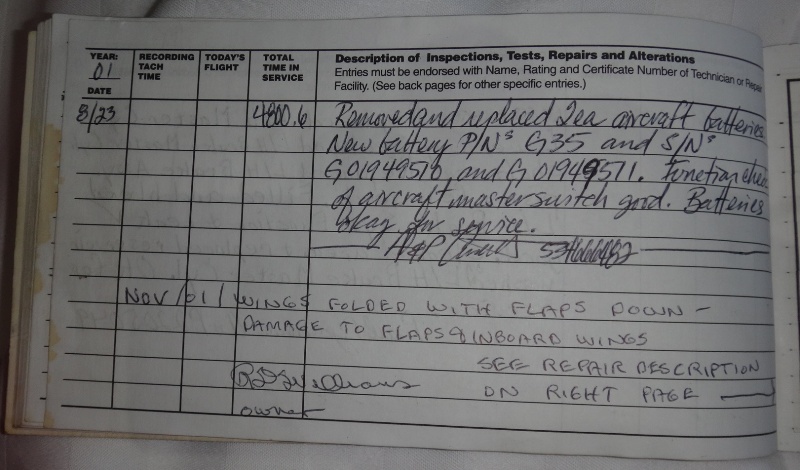 YEAR: 01
RECORDING TACH TIME
TODAY'S FLIGHT
TOTAL TIME IN SERVICE
Description of Inspections, Tests, Repairs and Alterations
Entries must be endorsed with Name, Rating and Certificate Number of Technician or Repair
Facility. (See back pages for other specific entries.)
DATE
8/23 4800.6 Removed and replaced 2ea aircraft batteries
New battery P/Ns G35 and S/Ns
G01949510, and G01949511. Function check
of aircraft master switch good. Batteries
okay for service.
A&P
Nov/01/ WINGS FOLDED WITH FLAPS DOWN -
DAMAGE TO FLAPS & INBOARD WINGS
SEE REPAIR DESCRIPTION
ON RIGHT PAGE
owner